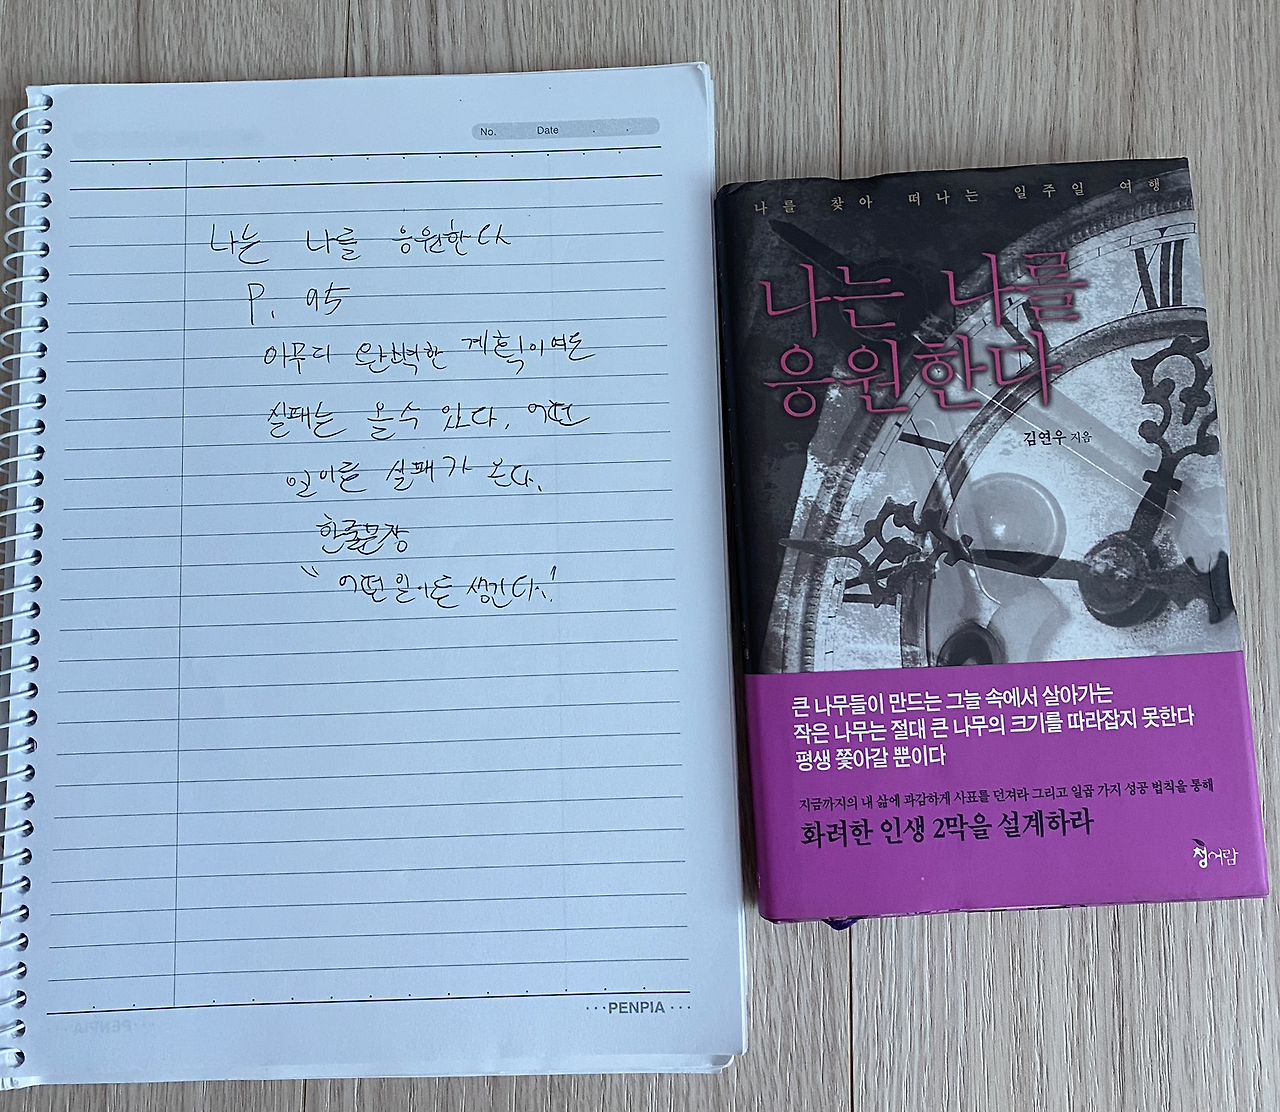 No. Date
나는 나를 응원한다
P. 95
아무리 완벽한 계획이여도
실패는 올수 있다. 어떤
일이든 실패가 온다.
한줄문장
" 어떤일이든 생긴다.!
PENPIA
나를 찾아 떠나는 일주일 여행
나는 나를
응원한다
김연우 지음
XII
큰 나무들이 만드는 그늘 속에서 살아가는
작은 나무는 절대 큰 나무의 크기를 따라잡지 못한다
평생 쫓아갈 뿐이다
지금까지의 내 삶에 과감하게 사표를 던져라 그리고 일곱 가지 성공 법칙을 통해
화려한 인생 2막을 설계하라
청어람